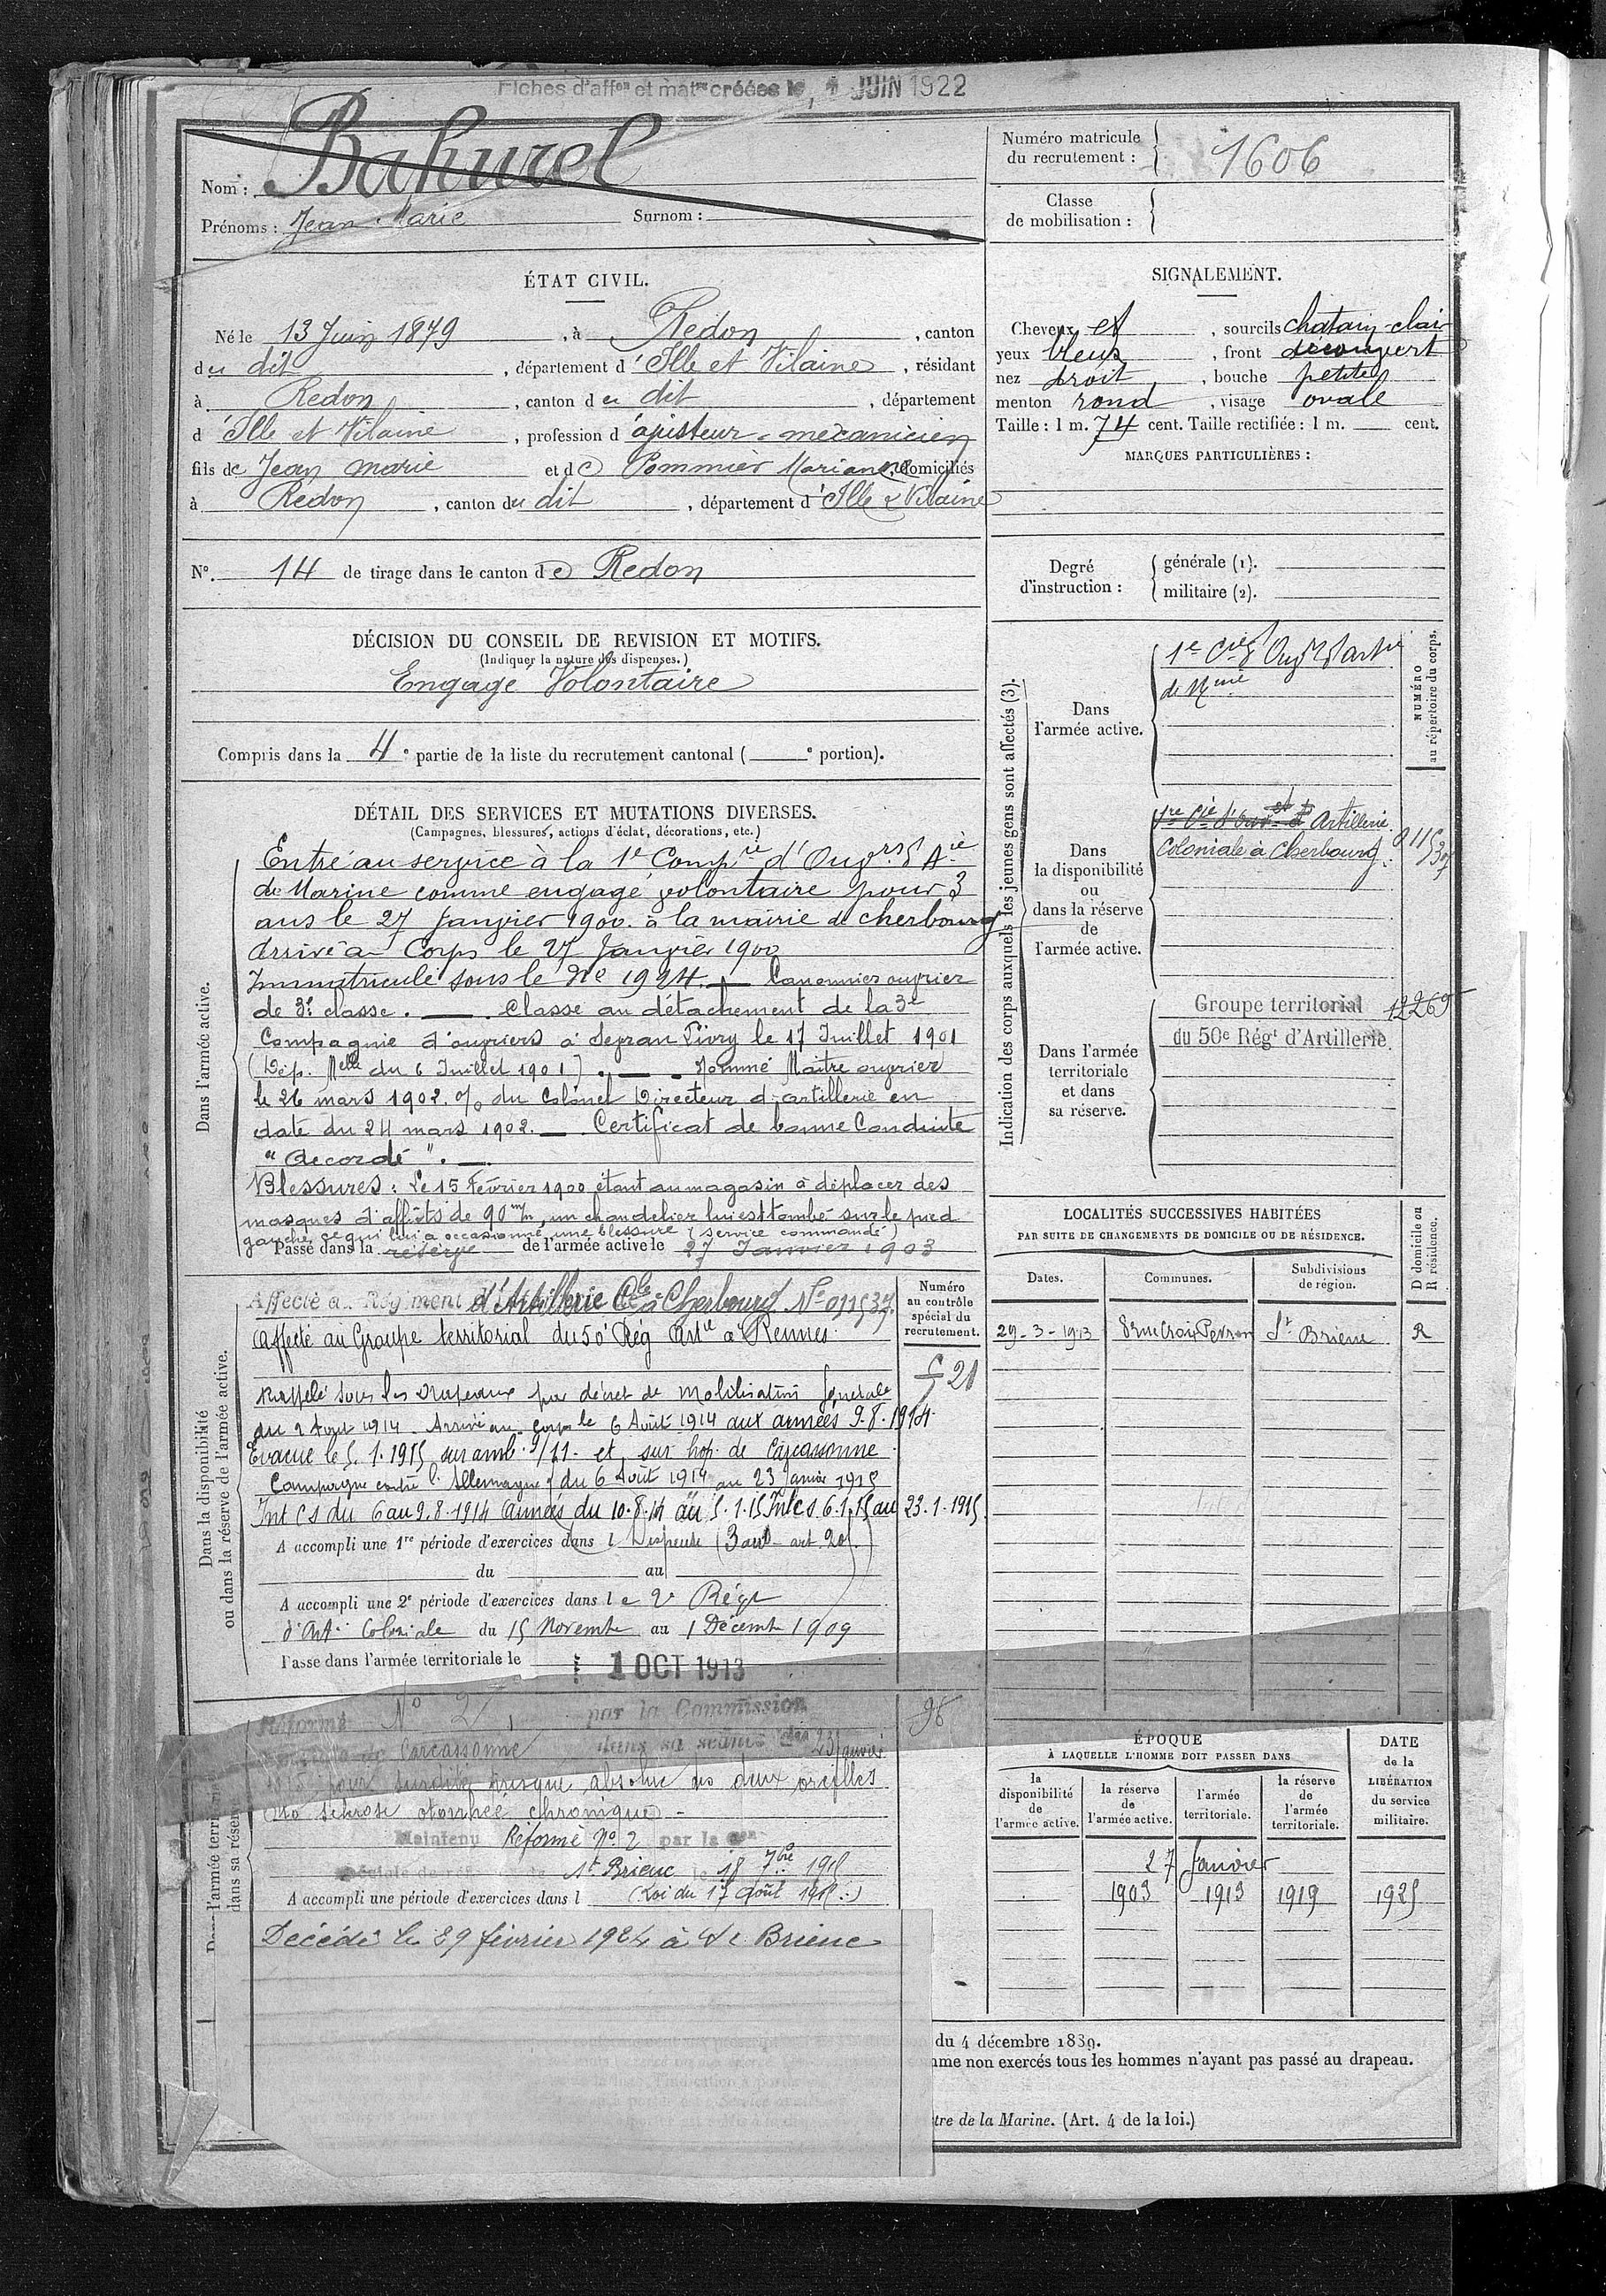 Fiches d'affon et matre créées le 1 JUIN 1922
Nom : Bahurel
Prénoms : Jean Marie Surnom :
Numéro matricule du recrutement : 1606
Classe de mobilisation :
ÉTAT CIVIL.
Né le 13 Juin 1879, à Redon, canton
du dit, département d'Ille et Vilaine, résidant
à Redon, canton du dit, département
d'Ille et Vilaine, profession d'ajusteur-mécanicien
fils de Jean Marie et de Pommier Marianne, domiciliés
à Redon, canton du dit, département d'Ille & Vilaine
N°. 14 de tirage dans le canton de Redon
SIGNALEMENT.
Cheveux et, sourcils chatain-clair
yeux bleus, front découvert
nez droit, bouche petite
menton rond, visage ovale
Taille : 1 m. 74 cent. Taille rectifiée : 1 m. cent.
MARQUES PARTICULIÈRES :
Degré d'instruction :
générale (1).
militaire (2).
DÉCISION DU CONSEIL DE REVISION ET MOTIFS.
(Indiquer la nature des dispenses.)
Engagé Volontaire
Compris dans la 4e partie de la liste du recrutement cantonal ( e portion).
DÉTAIL DES SERVICES ET MUTATIONS DIVERSES.
(Campagnes, blessures, actions d'éclat, décorations, etc.)
Dans l'armée active.
Entré au service à la 1e Compie d'Ouvrs d'Aie
de Marine comme engagé volontaire pour 3
ans le 27 Janvier 1900 à la mairie de Cherbourg
Arrivé au Corps le 27 Janvier 1900
Immatriculé sous le No 1924. — Canonnier ouvrier
de 3e classe. — Classé au détachement de la 3e
Compagnie d'ouvriers à Sevran Livry le 17 Juillet 1901
(Dép. Melle du 6 Juillet 1901). — Nommé Maitre ouvrier
le 26 mars 1902. O/o du Colonel Directeur d'artillerie en
date du 24 mars 1902. — Certificat de bonne Conduite
"Accordé". —
Blessures : Le 15 Février 1900 étant au magasin à déplacer des
masques d'affûts de 90 m/m, un chandelier lui est tombé sur le pied
gauche, ce qui lui a occasionné une blessure (service commandé)
Passé dans la réserve de l'armée active le 27 Janvier 1903
Indication des corps auxquels les jeunes gens sont affectés (3).
NUMÉRO au répertoire du corps.
Dans l'armée active.
1e Cie d'Ouvrs d'artie
de Mine
Dans la disponibilité ou dans la réserve de l'armée active.
1re Cie d'Ouvrs et d'Artillerie
Coloniale à Cherbourg
Dans l'armée territoriale et dans sa réserve.
Groupe territorial 12269
du 50e Régt d'Artillerie
Dans la disponibilité ou dans la réserve de l'armée active.
Numéro au contrôle spécial du recrutement.
Affecté au Régiment d'Artillerie Cle à Cherbourg No 011537
Affecté au Groupe territorial du 50e Rég Artie à Rennes
Rappelé sous les Drapeaux par décret de mobilisation générale
du 2 Août 1914 - Arrivé au corps le 6 Août 1914 aux armées 9.8.1914
Evacué le 5.1.1915 sur amb. 9/11 - et sur hop. de Carcassonne
Campagne contre l'Allemagne du 6 Août 1914 au 23 Janvier 1915
Int CS du 6 au 9.8.1914 Armées du 10.8.14 au 5.1.15 Int CS 6.1.15 au 23.1.1915
A accompli une 1re période d'exercices dans l Dispensé (3 art. 20)
du au
A accompli une 2e période d'exercices dans le 2e Régt
d'Arte Coloniale du 15 Novembre au 1 Décembre 1909
Passé dans l'armée territoriale le 1 OCT 1913
LOCALITÉS SUCCESSIVES HABITÉES
PAR SUITE DE CHANGEMENTS DE DOMICILE OU DE RÉSIDENCE.
Dates. Communes. Subdivisions de région. D domicile ou R résidence.
29-3-1913 8 rue Croix Perron St Brieuc R
Réformé No 2 par la Commission
de Carcassonne dans sa séance du 23 Janvier
1915 pour surdité presque absolue des deux oreilles
Oto sclérose otorrhée chronique -
Maintenu Réformé No 2 par la Con
spéciale de réforme de St Brieuc le 18 7bre 1915
(Loi du 17 Août 1915.)
A accompli une période d'exercices dans l
Décédé le 29 février 1924 à St Brieuc
ÉPOQUE
À LAQUELLE L'HOMME DOIT PASSER DANS
la disponibilité de l'armée active.
la réserve de l'armée active.
l'armée territoriale.
la réserve de l'armée territoriale.
DATE de la LIBÉRATION du service militaire.
27 Janvier
1903 1913 1919 1925
du 4 décembre 1889.
mme non exercés tous les hommes n'ayant pas passé au drapeau.
tre de la Marine. (Art. 4 de la loi.)